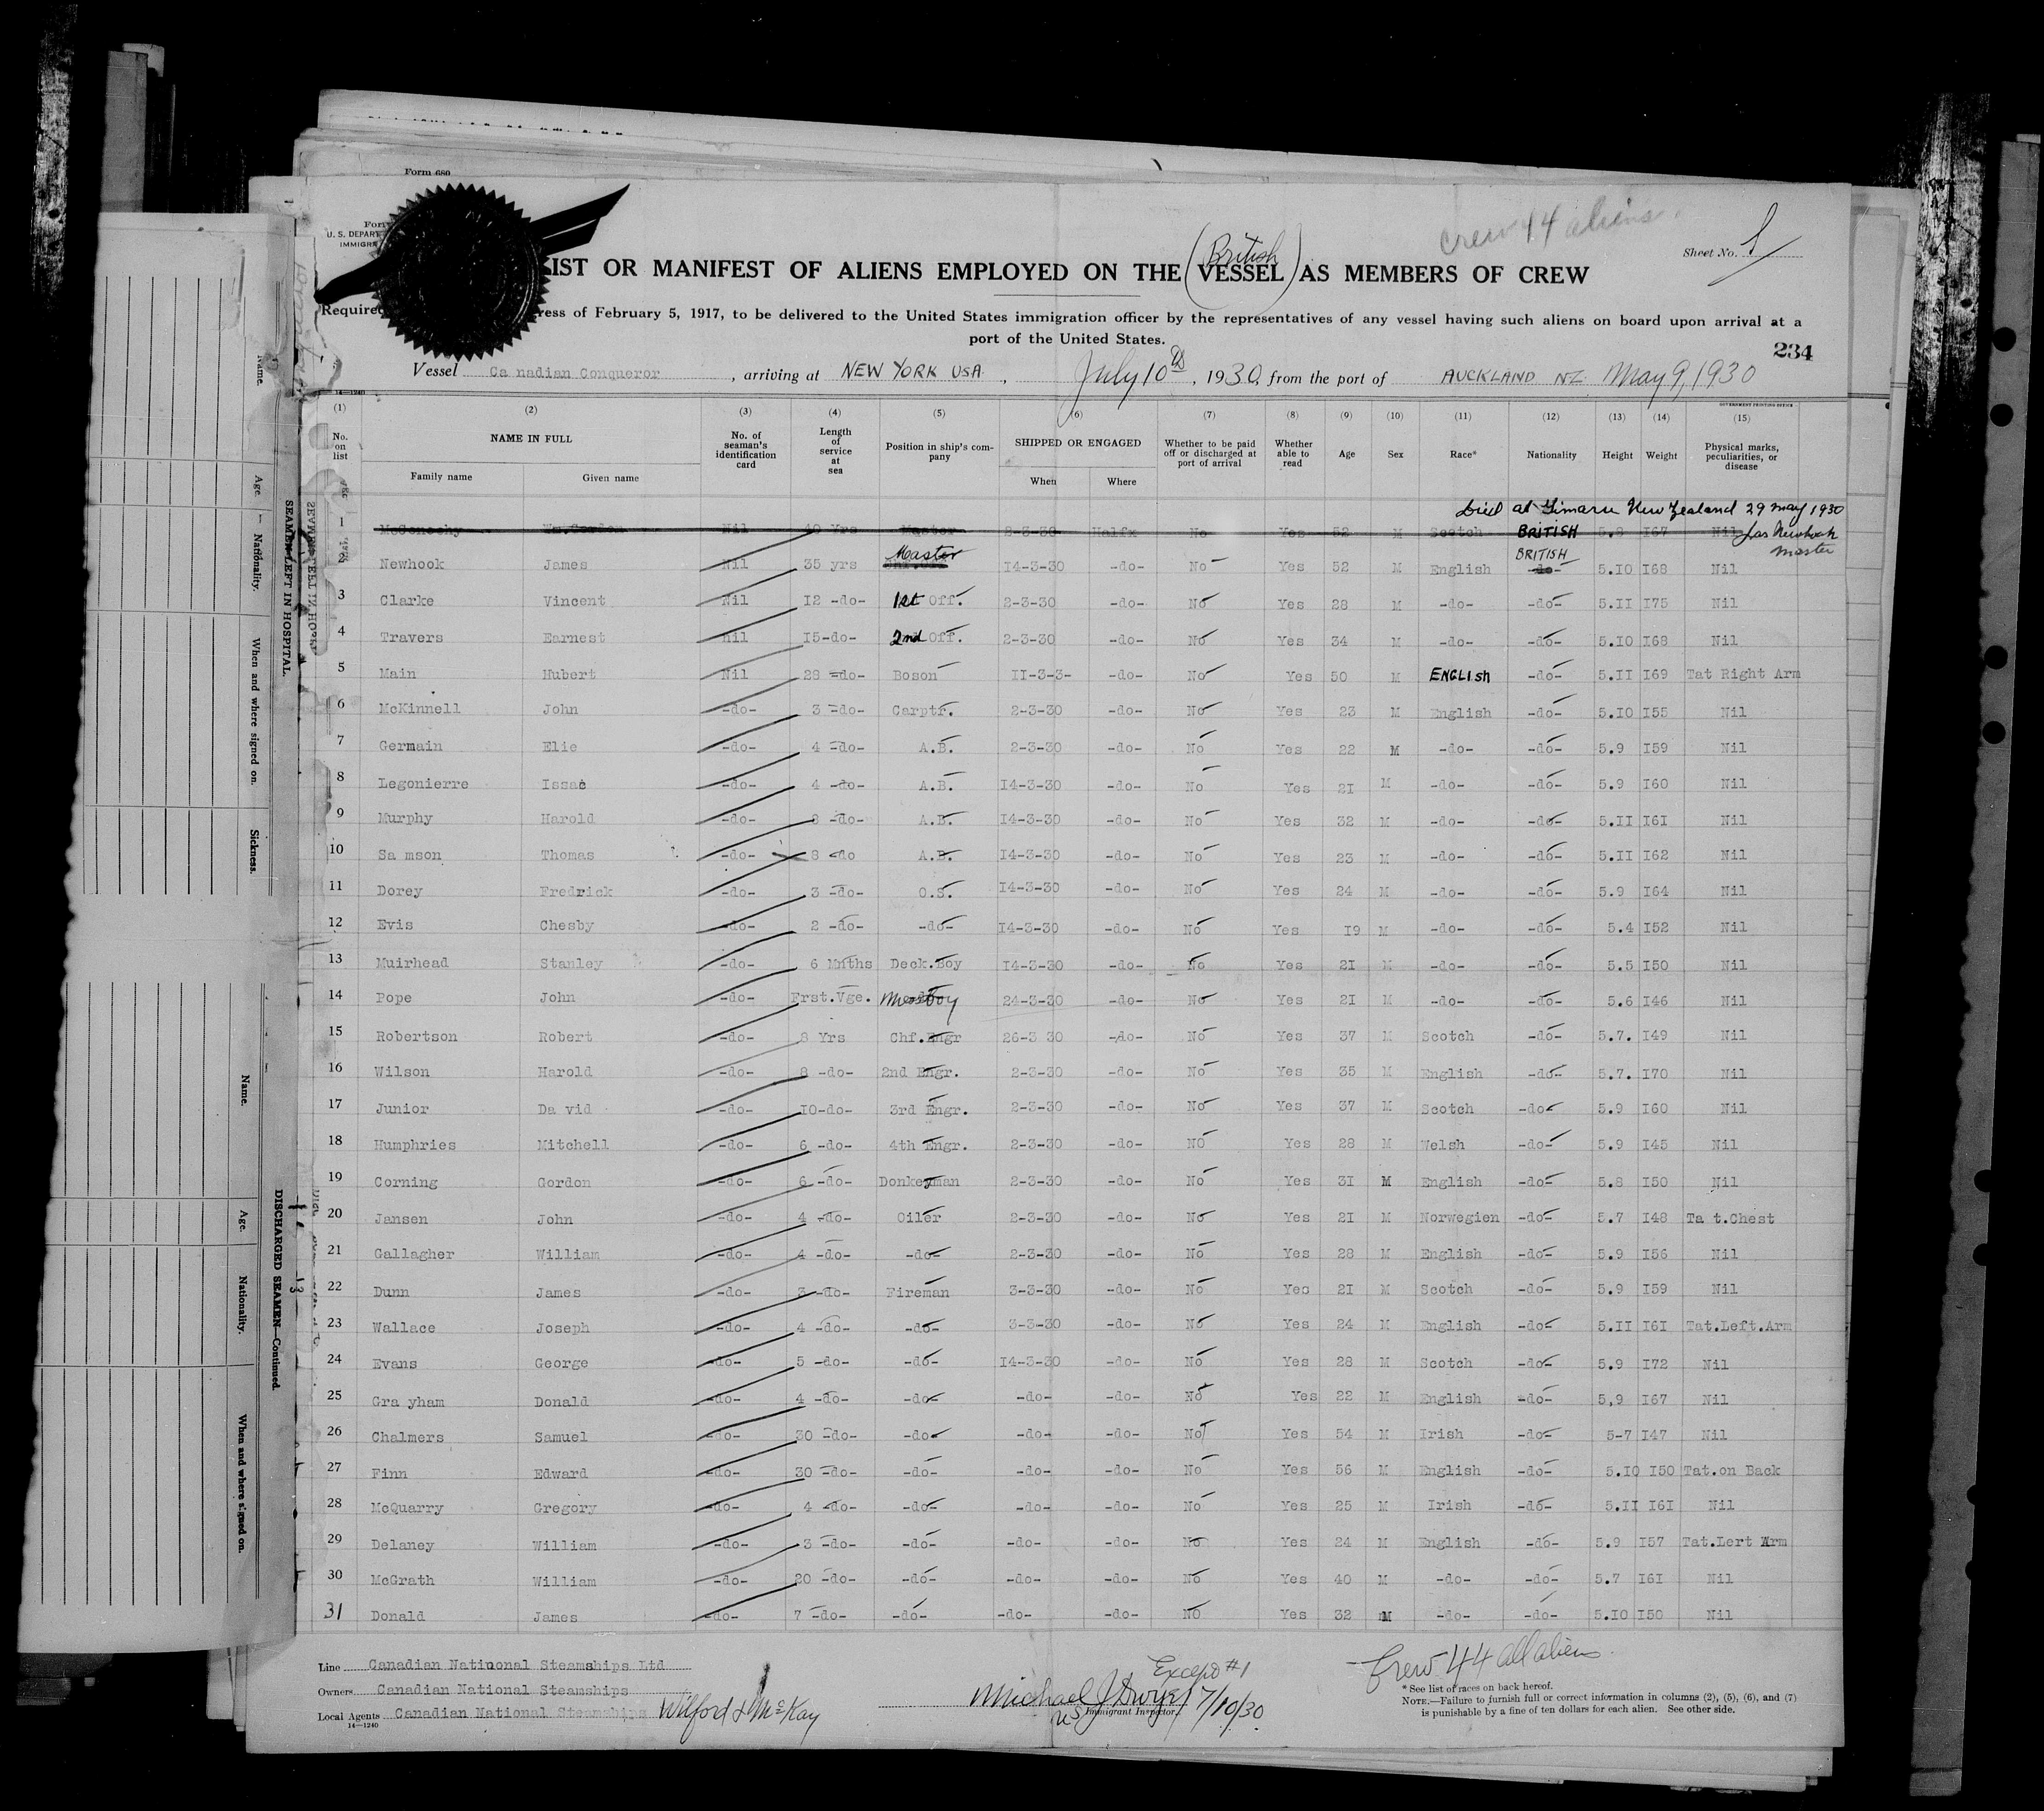 Form 680
U. S. DEPART
IMMIGRA
crew 44 aliens
Sheet No. 1
IST OR MANIFEST OF ALIENS EMPLOYED ON THE (British VESSEL) AS MEMBERS OF CREW
Required ress of February 5, 1917, to be delivered to the United States immigration officer by the representatives of any vessel having such aliens on board upon arrival at a
port of the United States.
234
Vessel Ca nadian Conqueror, arriving at NEW YORK USA, July 10th, 1930, from the port of AUCKLAND NZ May 9, 1930
14—1240
GOVERNMENT PRINTING OFFICE
(1) (2) (3) (4) (5) (6) (7) (8) (9) (10) (11) (12) (13) (14) (15)
No. on list NAME IN FULL No. of seaman's identification card Length of service at sea Position in ship's company SHIPPED OR ENGAGED Whether to be paid off or discharged at port of arrival Whether able to read Age Sex Race* Nationality Height Weight Physical marks, peculiarities, or disease
Family name Given name When Where
Died at Timaru New Zealand 29 May 1930
1 McConechy Wm.Gordon Nil 40 Yrs Master 8-3-30 Halfx No Yes 52 M Scotch BRITISH 5.8 I67 Nil Jas Newhook
Master
2 Newhook James Nil 35 yrs Master 14-3-30 -do- No Yes 52 M English BRITISH -do- 5.I0 I68 Nil
3 Clarke Vincent Nil I2 -do- 1st Off. 2-3-30 -do- No Yes 28 M -do- -do- 5.II I75 Nil
4 Travers Earnest nil I5-do- 2nd Off. 2-3-30 -do- No Yes 34 M -do- -do- 5.I0 I68 Nil
5 Main Hubert Nil 28 -do- Boson II-3-3- -do- No Yes 50 M ENGLISH -do- 5.II I69 Tat Right Arm
6 McKinnell John -do- 3 -do- Carptr. 2-3-30 -do- No Yes 23 M English -do- 5.I0 I55 Nil
7 Germain Elie -do- 4 -do- A.B. 2-3-30 -do- No Yes 22 M -do- -do- 5.9 I59 Nil
8 Legonierre Issac -do- 4 -do- A.B. I4-3-30 -do- No Yes 2I M -do- -do- 5.9 I60 Nil
9 Murphy Harold -do- 8 -do- A.B. I4-3-30 -do- No Yes 32 M -do- -do- 5.II I6I Nil
10 Sa mson Thomas -do- 8 -do A.B. I4-3-30 -do- No Yes 23 M -do- -do- 5.II I62 Nil
11 Dorey Fredrick -do- 3 -do- O.S. I4-3-30 -do- No Yes 24 M -do- -do- 5.9 I64 Nil
12 Evis Chesby -do- 2 -do- -do- I4-3-30 -do- No Yes I9 M -do- -do- 5.4 I52 Nil
13 Muirhead Stanley -do- 6 Mnths Deck.Boy I4-3-30 -do- No Yes 2I M -do- -do- 5.5 I50 Nil
14 Pope John -do- Frst.Vge. Messboy 24-3-30 -do- No Yes 2I M -do- -do- 5.6 I46 Nil
15 Robertson Robert -do- 8 Yrs Chf.Engr 26-3 30 -do- No Yes 37 M Scotch -do- 5.7. I49 Nil
16 Wilson Harold -do- 8 -do- 2nd Engr. 2-3-30 -do- No Yes 35 M English -do- 5.7. I70 Nil
17 Junior Da vid -do- I0-do- 3rd Engr. 2-3-30 -do- No Yes 37 M Scotch -do- 5.9 I60 Nil
18 Humphries Mitchell -do- 6 -do- 4th Engr. 2-3-30 -do- NO Yes 28 M Welsh -do- 5.9 I45 Nil
19 Corning Gordon -do- 6 -do- Donkeyman 2-3-30 -do- No Yes 3I M English -do- 5.8 I50 Nil
20 Jansen John -do- 4 -do- Oiler 2-3-30 -do- No Yes 2I M Norwegien -do- 5.7 I48 Ta t.Chest
21 Gallagher William -do- 4 -do- -do- 2-3-30 -do- No Yes 28 M English -do- 5.9 I56 Nil
22 Dunn James -do- 3 -do- Fireman 3-3-30 -do- No Yes 2I M Scotch -do- 5.9 I59 Nil
23 Wallace Joseph -do- 4 -do- -do- 3-3-30 -do- No Yes 24 M English -do- 5.II I6I Tat.Left.Arm
24 Evans George -do- 5 -do- -do- I4-3-30 -do- No Yes 28 M Scotch -do- 5.9 I72 Nil
25 Gra yham Donald -do- 4 -do- -do- -do- -do- No Yes 22 M English -do- 5,9 I67 Nil
26 Chalmers Samuel -do- 30 -do- -do- -do- -do- No Yes 54 M Irish -do- 5-7 I47 Nil
27 Finn Edward -do- 30 -do- -do- -do- -do- No Yes 56 M English -do- 5.I0 I50 Tat.on Back
28 McQuarry Gregory -do- 4 -do- -do- -do- -do- No Yes 25 M Irish -do- 5.II I6I Nil
29 Delaney William -do- 3 -do- -do- -do- -do- No Yes 24 M English -do- 5.9 I57 Tat.Lert Arm
30 McGrath William -do- 20 -do- -do- -do- -do- No Yes 40 M -do- -do- 5.7 I6I Nil
31 Donald James -do- 7 -do- -do- -do- -do- NO Yes 32 M -do- -do- 5.I0 I50 Nil
Line Canadian Natiuonal Steamships Ltd
Owners Canadian National Steamships
Local Agents Canadian National Steamships Wilford & McKay
14—1240
Except #1
Michael J Dwyer 7/10/30
US Immigrant Inspector
Crew 44 all aliens
* See list of races on back hereof.
NOTE.—Failure to furnish full or correct information in columns (2), (5), (6), and (7)
is punishable by a fine of ten dollars for each alien. See other side.
SEAMEN LEFT IN HOSPITAL.
Name. Age. Nationality. When and where signed on. Sickness.
DISCHARGED SEAMEN—Continued.
Name. Age. Nationality. When and where signed on.